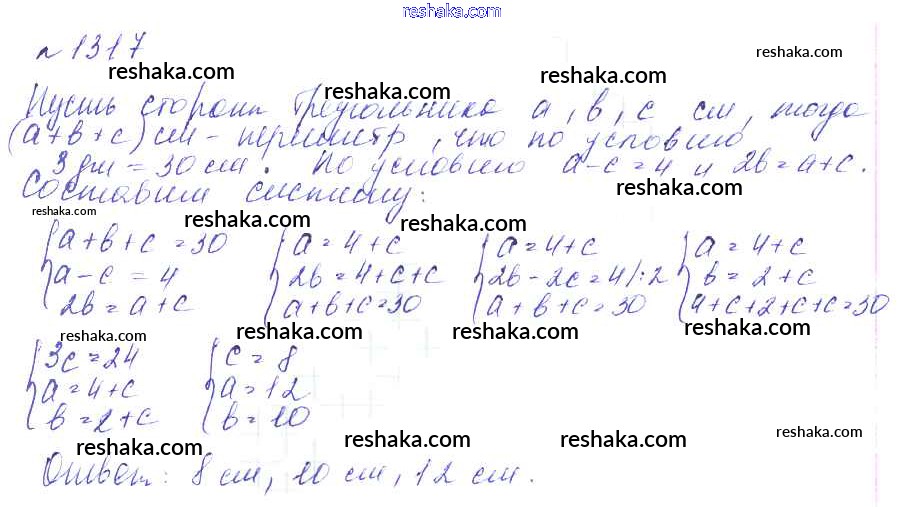 reshaka.com
n 1317
reshaka.com reshaka.com reshaka.com reshaka.com
Пусть стороны треугольника a, b, c см, тогда
(a+b+c) см - периметр, что по условию
3 дм = 30 см. По условию a-c=4 и 2b=a+c.
reshaka.com
Составим систему:
reshaka.com reshaka.com reshaka.com
a+b+c=30 a=4+c a=4+c a=4+c
a-c=4 2b=4+c+c 2b-2c=4/:2 b=2+c
2b=a+c a+b+c=30 a+b+c=30 4+c+2+c+c=30
reshaka.com reshaka.com reshaka.com reshaka.com
3c=24 c=8
a=4+c a=12
b=2+c b=10
reshaka.com reshaka.com reshaka.com reshaka.com
Ответ: 8 см, 10 см, 12 см.